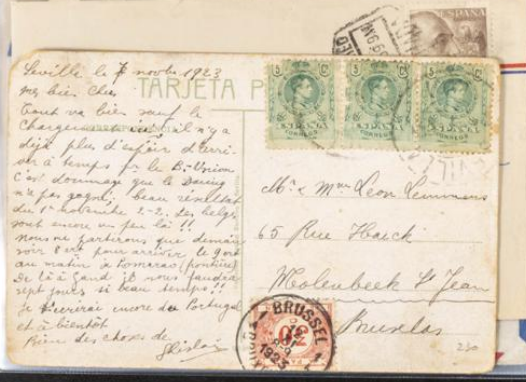 ESPAÑA
Seville le 7 novbre 1923
TARJETA P
mes bien chers
Tout va bien sauf le
chargement, il n'y a
déjà plus d'espoir d'arri-
ver à temps pr le B.-Union
C'est dommage que le Daring
n'a pas gagné, beau résultat
du 1er novembre 2-2. Les belges
sont encore un peu là !!
nous ne partirons que demain
soir 8 ct pour arriver le 9 ct
au matin à Pomarao (
De là à Gand il nous faudra
sept jours si beau temps !!
Je écrirai encore du Portugal
et à bientôt
Bien des choses de
Ghislain
5 Cs 5 Cs 5 Cs
ESPAÑA ESPAÑA ESPAÑA
CORREOS CORREOS CORREOS
Mr & Mme Leon Lemmens
65 Rue Haeck
Molenbeek St Jean
Bruxelas
BRUSSEL
1923
50
230